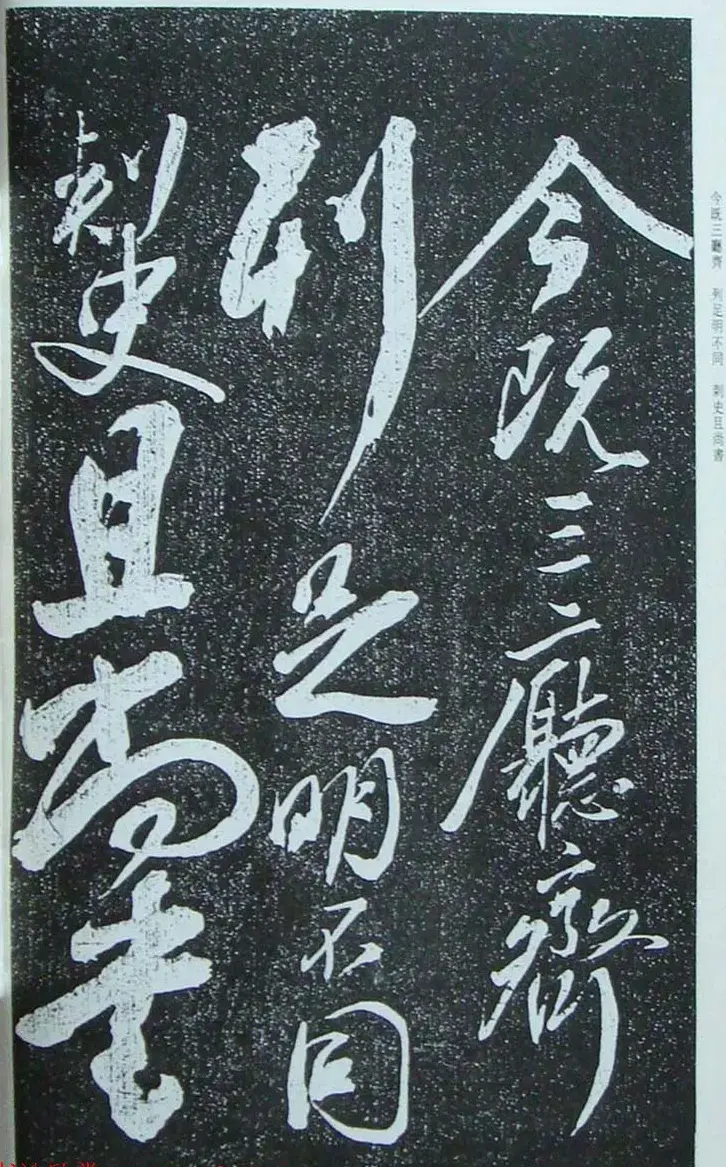 今既三廳齊
列足明不同
刺史且尚書
今既三廳齊 列足明不同 刺史且尚書